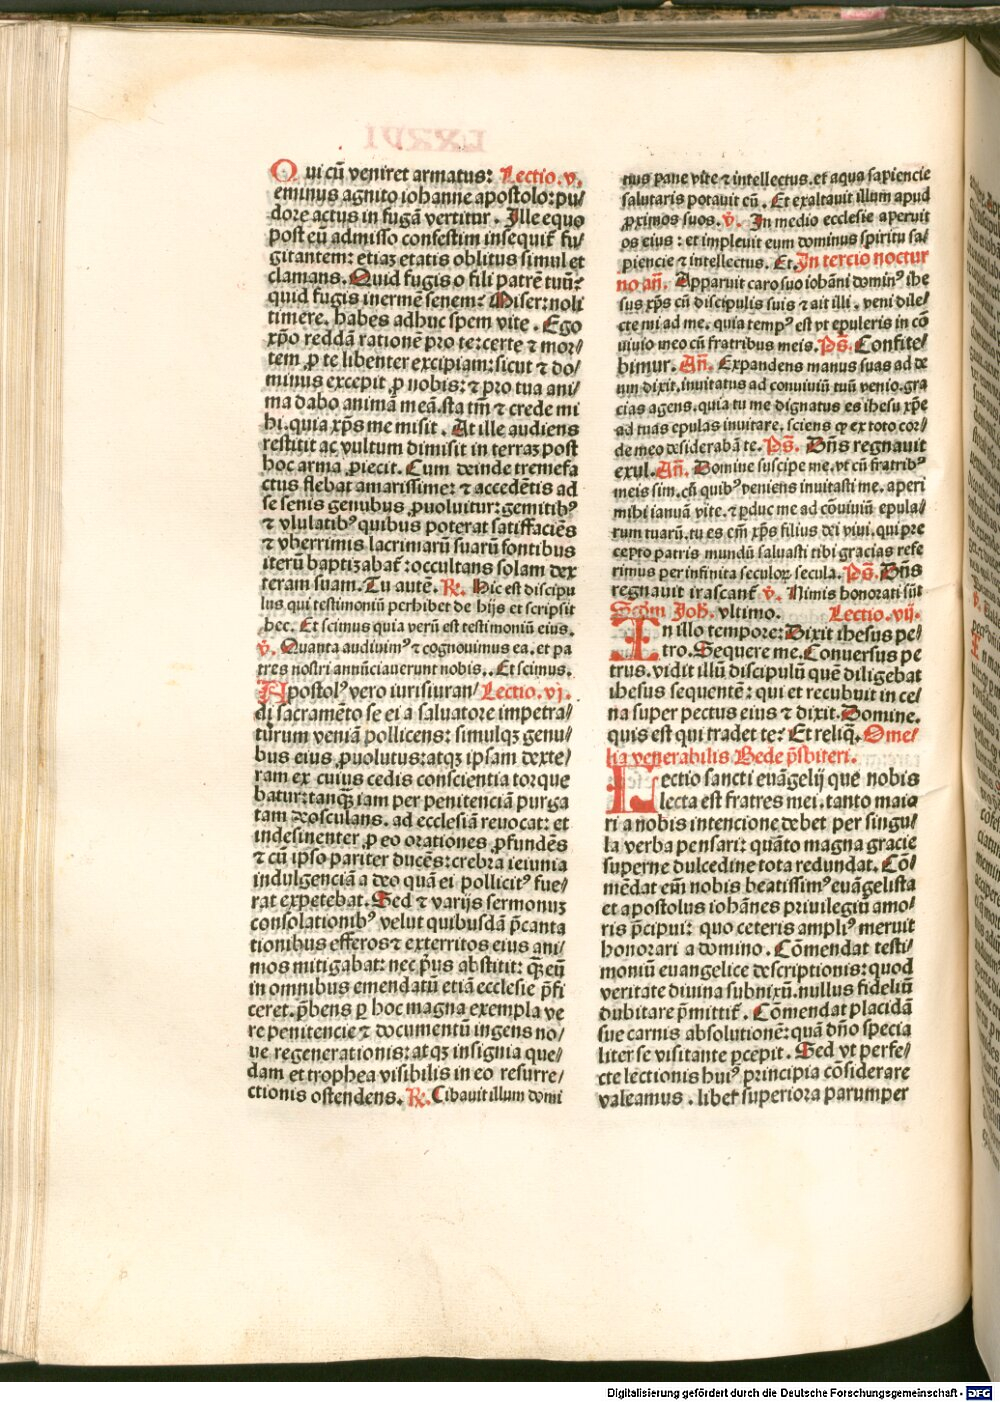 Qui cū veniret armatus: Lectio.v.
eminus agnito iohanne apostolo: pu/
dore actus in fugā vertitur. Ille equo
post eū admisso confestim insequit̄ fu/
gitantem: etiaꝫ etatis oblitus simul et
clamans. Quid fugis o fili patrē tuū?
quid fugis inermē senem? Miser: noli
timere. habes adhuc spem vite. Ego
xp̄o reddā rationē pro te: certe ⁊ mor/
tem ꝓ te libenter excipiam: sicut ⁊ do/
minus excepit ꝓ nobis: ⁊ pro tua ani/
ma dabo animā meā. sta tm̄ ⁊ crede mi
hi. quia xp̄s me misit. At ille audiens
restitit ac vultum dimisit in terraꝫ post
hoc arma ꝓiecit. Cum deinde tremefa
ctus flebat amarissime: ⁊ accedētis ad
se senis genubus ꝓuoluitur: gemitibꝰ
⁊ vlulatibꝰ quibus poterat satiffaciēs
⁊ vberrimis lacrimarū suarū fontibus
iterū baptizabat̄: occultans solam dex
teram suam. Tu autē. ℟. Hic est discipu
lus qui testimoniū perhibet de hijs et scripsit
hec. Et scimus quia verū est testimoniū eius.
℣. Quanta audiuimꝰ ⁊ cognouimus ea. et pa
tres nostri annūciauerunt nobis.. Et scimus.
Apostolꝰ vero iurisiuran/ Lectio.vj.
di sacramēto se ei a saluatore impetra/
turum veniā pollicens: simulqꝫ genu/
bus eius ꝓuolutus: atqꝫ ipsam dexte/
ram ex cuius cedis conscientia torque
batur: tanqꝫ̄ iam per penitenciā purga
tam deosculans. ad ecclesiā reuocat: et
indesinenter ꝓ eo orationes ꝓfundēs
⁊ cū ipso pariter ducēs: crebra ieiunia
indulgenciā a deo quā ei pollicitꝰ fue/
rat expetebat. Sed ⁊ varijs sermonuꝫ
consolationibꝰ velut quibusdā p̄canta
tionibus efferos ⁊ exterritos eius ani/
mos mitigabat: nec p̄us abstitit: qꝫ̄ eū
in omnibus emendatū etiā ecclesie p̄fi
ceret. p̄bens ꝑ hoc magna exempla ve
re penitencie ⁊ documentū ingens no/
ue regenerationis: atqꝫ insignia que/
dam et trophea visibilis in eo resurre/
ctionis ostendens. ℟. Cibauit illum domi
nus pane vite ⁊ intellectus. et aqua sapiencie
salutaris potauit eū. Et exaltauit illum apud
ꝓximos suos. ℣. In medio ecclesie aperuit
os eius: et impleuit eum dominus spiritu sa/
piencie ⁊ intellectus. Et. In tercio noctur
no an̄. Apparuit caro suo iohāni dominꝰ ihe
sus xp̄s cū discipulis suis ⁊ ait illi. veni dile/
cte mi ad me. quia tempꝰ est vt epuleris in cō
uiuio meo cū fratribus meis. Ps̄. Confite/
bimur. An̄. Expandens manus suas ad de
um dixit. inuitatus ad conuiuiū tuū venio. gra
cias agens. quia tu me dignatus es ihesu xp̄e
ad tuas epulas inuitare. sciens ꝙ ex toto cor/
de meo desiderabā te. Ps̄. Dn̄s regnauit
exul. An̄. Domine suscipe me. vt cū fratribꝰ
meis sim. cū quibꝰ veniens inuitasti me. aperi
mihi ianuā vite. ⁊ ꝑduc me ad cōuiuiū epula/
rum tuarū. tu es em̄ xp̄s filius dei viui. qui pre
cepto patris mundū saluasti tibi gracias refe
rimus per infinita seculoꝝ secula. Ps̄. Dn̄s
regnauit irascant̄ ℣. Nimis honorati sūt
Scd̄m Joh̄. vltimo. Lectio.vij.
In illo tempore: Dixit ihesus pe/
tro. Sequere me. Conuersus pe
trus. vidit illū discipulū quē diligebat
ihesus sequentē: qui et recubuit in ce/
na super pectus eius ⁊ dixit. Domine.
quis est qui tradet te? Et reliq̄. Ome/
lia venerabilis Bede p̄sbiteri.
Lectio sancti euāgelij que nobis
lecta est fratres mei. tanto maio
ri a nobis intencione debet per singu/
la verba pensari: quāto magna gracie
superne dulcedine tota redundat. Cō/
mēdat em̄ nobis beatissimꝰ euāgelista
et apostolus iohānes priuilegiū amo/
ris p̄cipui: quo ceteris ampliꝰ meruit
honorari a domino. Cōmendat testi/
moniū euangelice descriptionis: quod
veritate diuina subnixū. nullus fideliū
dubitare p̄mittit̄. Cōmendat placidā
sue carnis absolutionē: quā dn̄o specia
liter se visitante ꝑcepit. Sed vt perfe/
cte lectionis huiꝰ principia cōsiderare
valeamus. libet superiora parumper
Digitalisierung gefördert durch die Deutsche Forschungsgemeinschaft - DFG